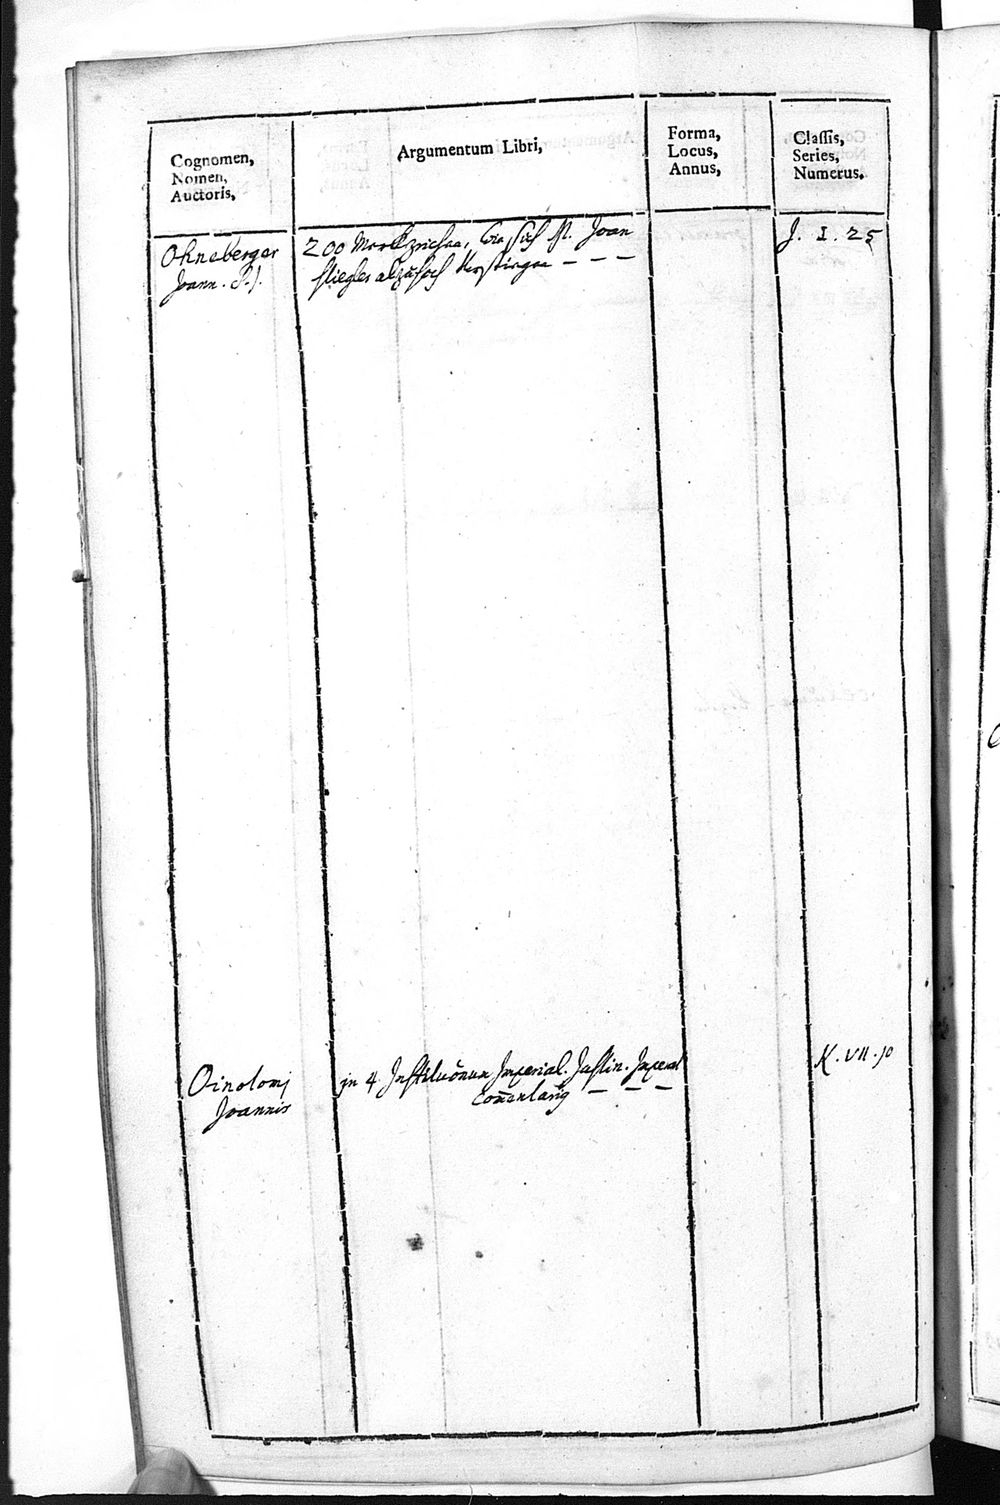 Cognomen,
Nomen,
Auctoris,
Argumentum Libri,
Forma,
Locus,
Annus,
Classis,
Series,
Numerus.
Ohneberger
Joann. S.J.
200 Merkzeichen, sich St. Joan
J. I. 25
Oinotomj
Joannis
jn 4 Institutõnum Imperial. Justin. Imperat
Com̃entariȷ̃ — — —
K. VII. 10